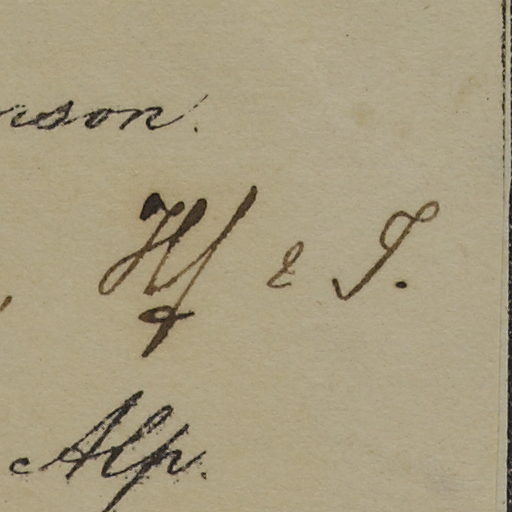 nson.
Hf & T.
Alp.